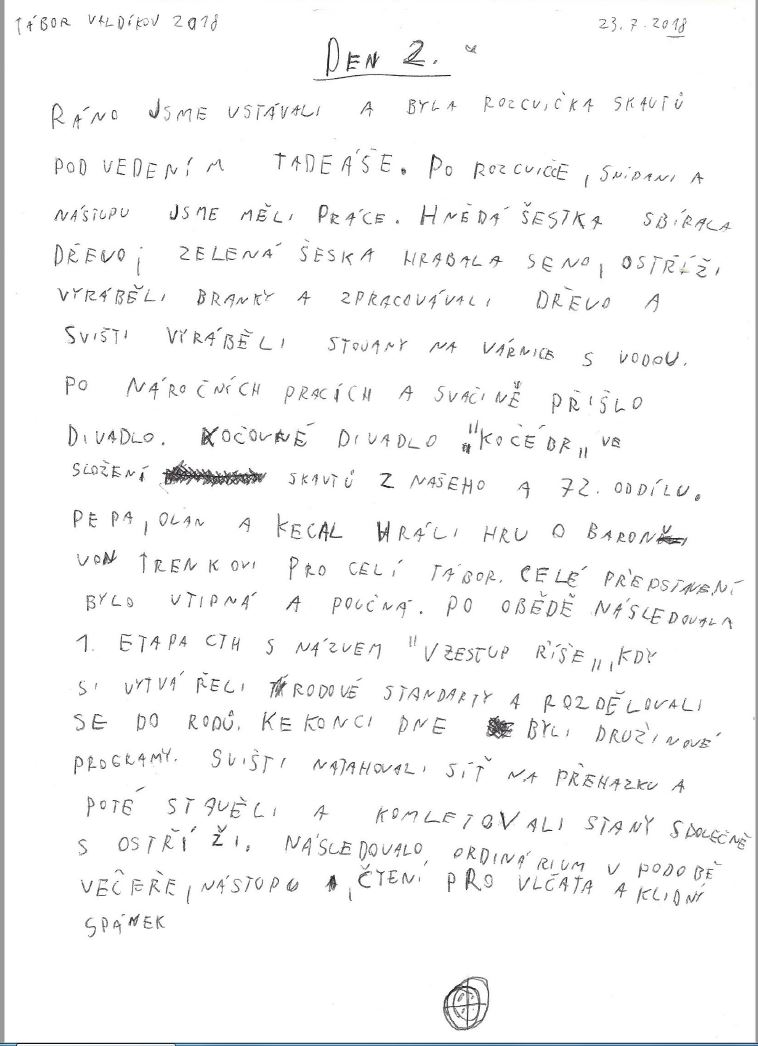 TÁBOR VALDÍKOV 2018 23.7.2018
DEN 2.
RÁNO JSME VSTÁVALI A BYLA ROZCVIČKA SKAUTŮ
POD VEDENÍM TADEÁŠE. PO ROZCVIČCE, SNÍDANI A
NÁSTUPU JSME MĚLI PRÁCE. HNĚDÁ ŠESTKA SBÍRALA
DŘEVO, ZELENÁ ŠESKA HRABALA SENO, OSTŘÍŽI
VYRÁBĚLI BRANKY A ZPRACOVÁVALI DŘEVO A
SVIŠTI VYRÁBĚLI STOJANY NA VÁRNICE S VODOU.
PO NÁROČNÍCH PRACÍCH A SVAČINĚ PŘIŠLO
DIVADLO. KOČOVNÉ DIVADLO "KOČÉBR" VE
SLOŽENÍ SKAUTŮ Z NAŠEHO A 72. ODDÍLU.
PEPA, OLAN A KECAL HRÁLI HRU O BARON
VON TRENKOVI PRO CELÍ TÁBOR. CELÉ PŘEDSTAVENÍ
BYLO VTIPNÁ A POUČNÁ. PO OBĚDĚ NÁSLEDOVALA
1. ETAPA CTH S NÁZVEM "VZESTUP ŘÍŠE", KDY
SI VYTVÁŘELI RODOVÉ STANDARTY A ROZDĚLOVALI
SE DO RODŮ. KE KONCI DNE BYLI DRUŽINOVÉ
PROGRAMY. SVIŠTI NATAHOVALI SÍŤ NA PŘEHAZKU A
POTÉ STAVĚLI A KOMLETOVALI STANY SPOLEČNĚ
S OSTŘÍŽI. NÁSLEDOVALO ORDINÁRIUM V PODOBĚ
VEČEŘE, NÁSTUPU, ČTENÍ PRO VLČATA A KLIDNÝ
SPÁNEK